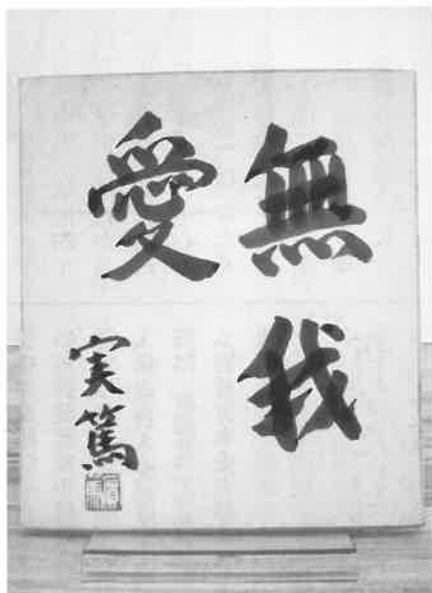 無我
愛
実篤